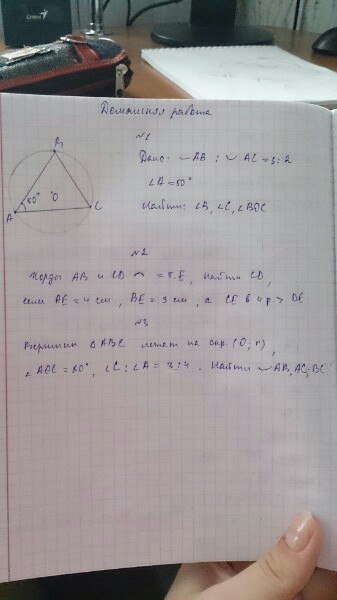 Домашняя работа
№1
Дано: ◡AB : ◡AC = 3:2
∠A = 50°
Найти: ∠B, ∠C, ∠BOC
B
50°
O
A
C
№2
Хорды AB и CD ⌒ = т. E, найти CD,
если AE = 4 см, BE = 9 см, а CE в 4 р. > DE
№3
Вершины △ABC лежат на окр. (O, r),
∠AOC = 80°, ∠C : ∠A = 3:4. Найти ◡AB, AC, BC